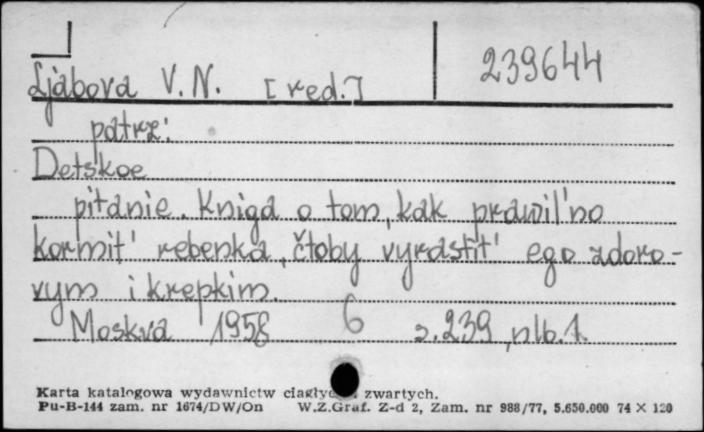 Ljabova V.N. [red.] 239644
patrz:
Detskoe
pitanie. Kniga o tom, kak prawil'no
kormit' rebenka, čtoby vyrastit' ego zdoro-
vym i krepkim.
Moskva 1958 6 s. 239, nlb. 1.
Karta katalogowa wydawnictw ciągłych i zwartych.
Pu-B-144 zam. nr 1674/DW/On W.Z.Graf. Z-d 2, Zam. nr 988/77, 5.650.000 74 × 120